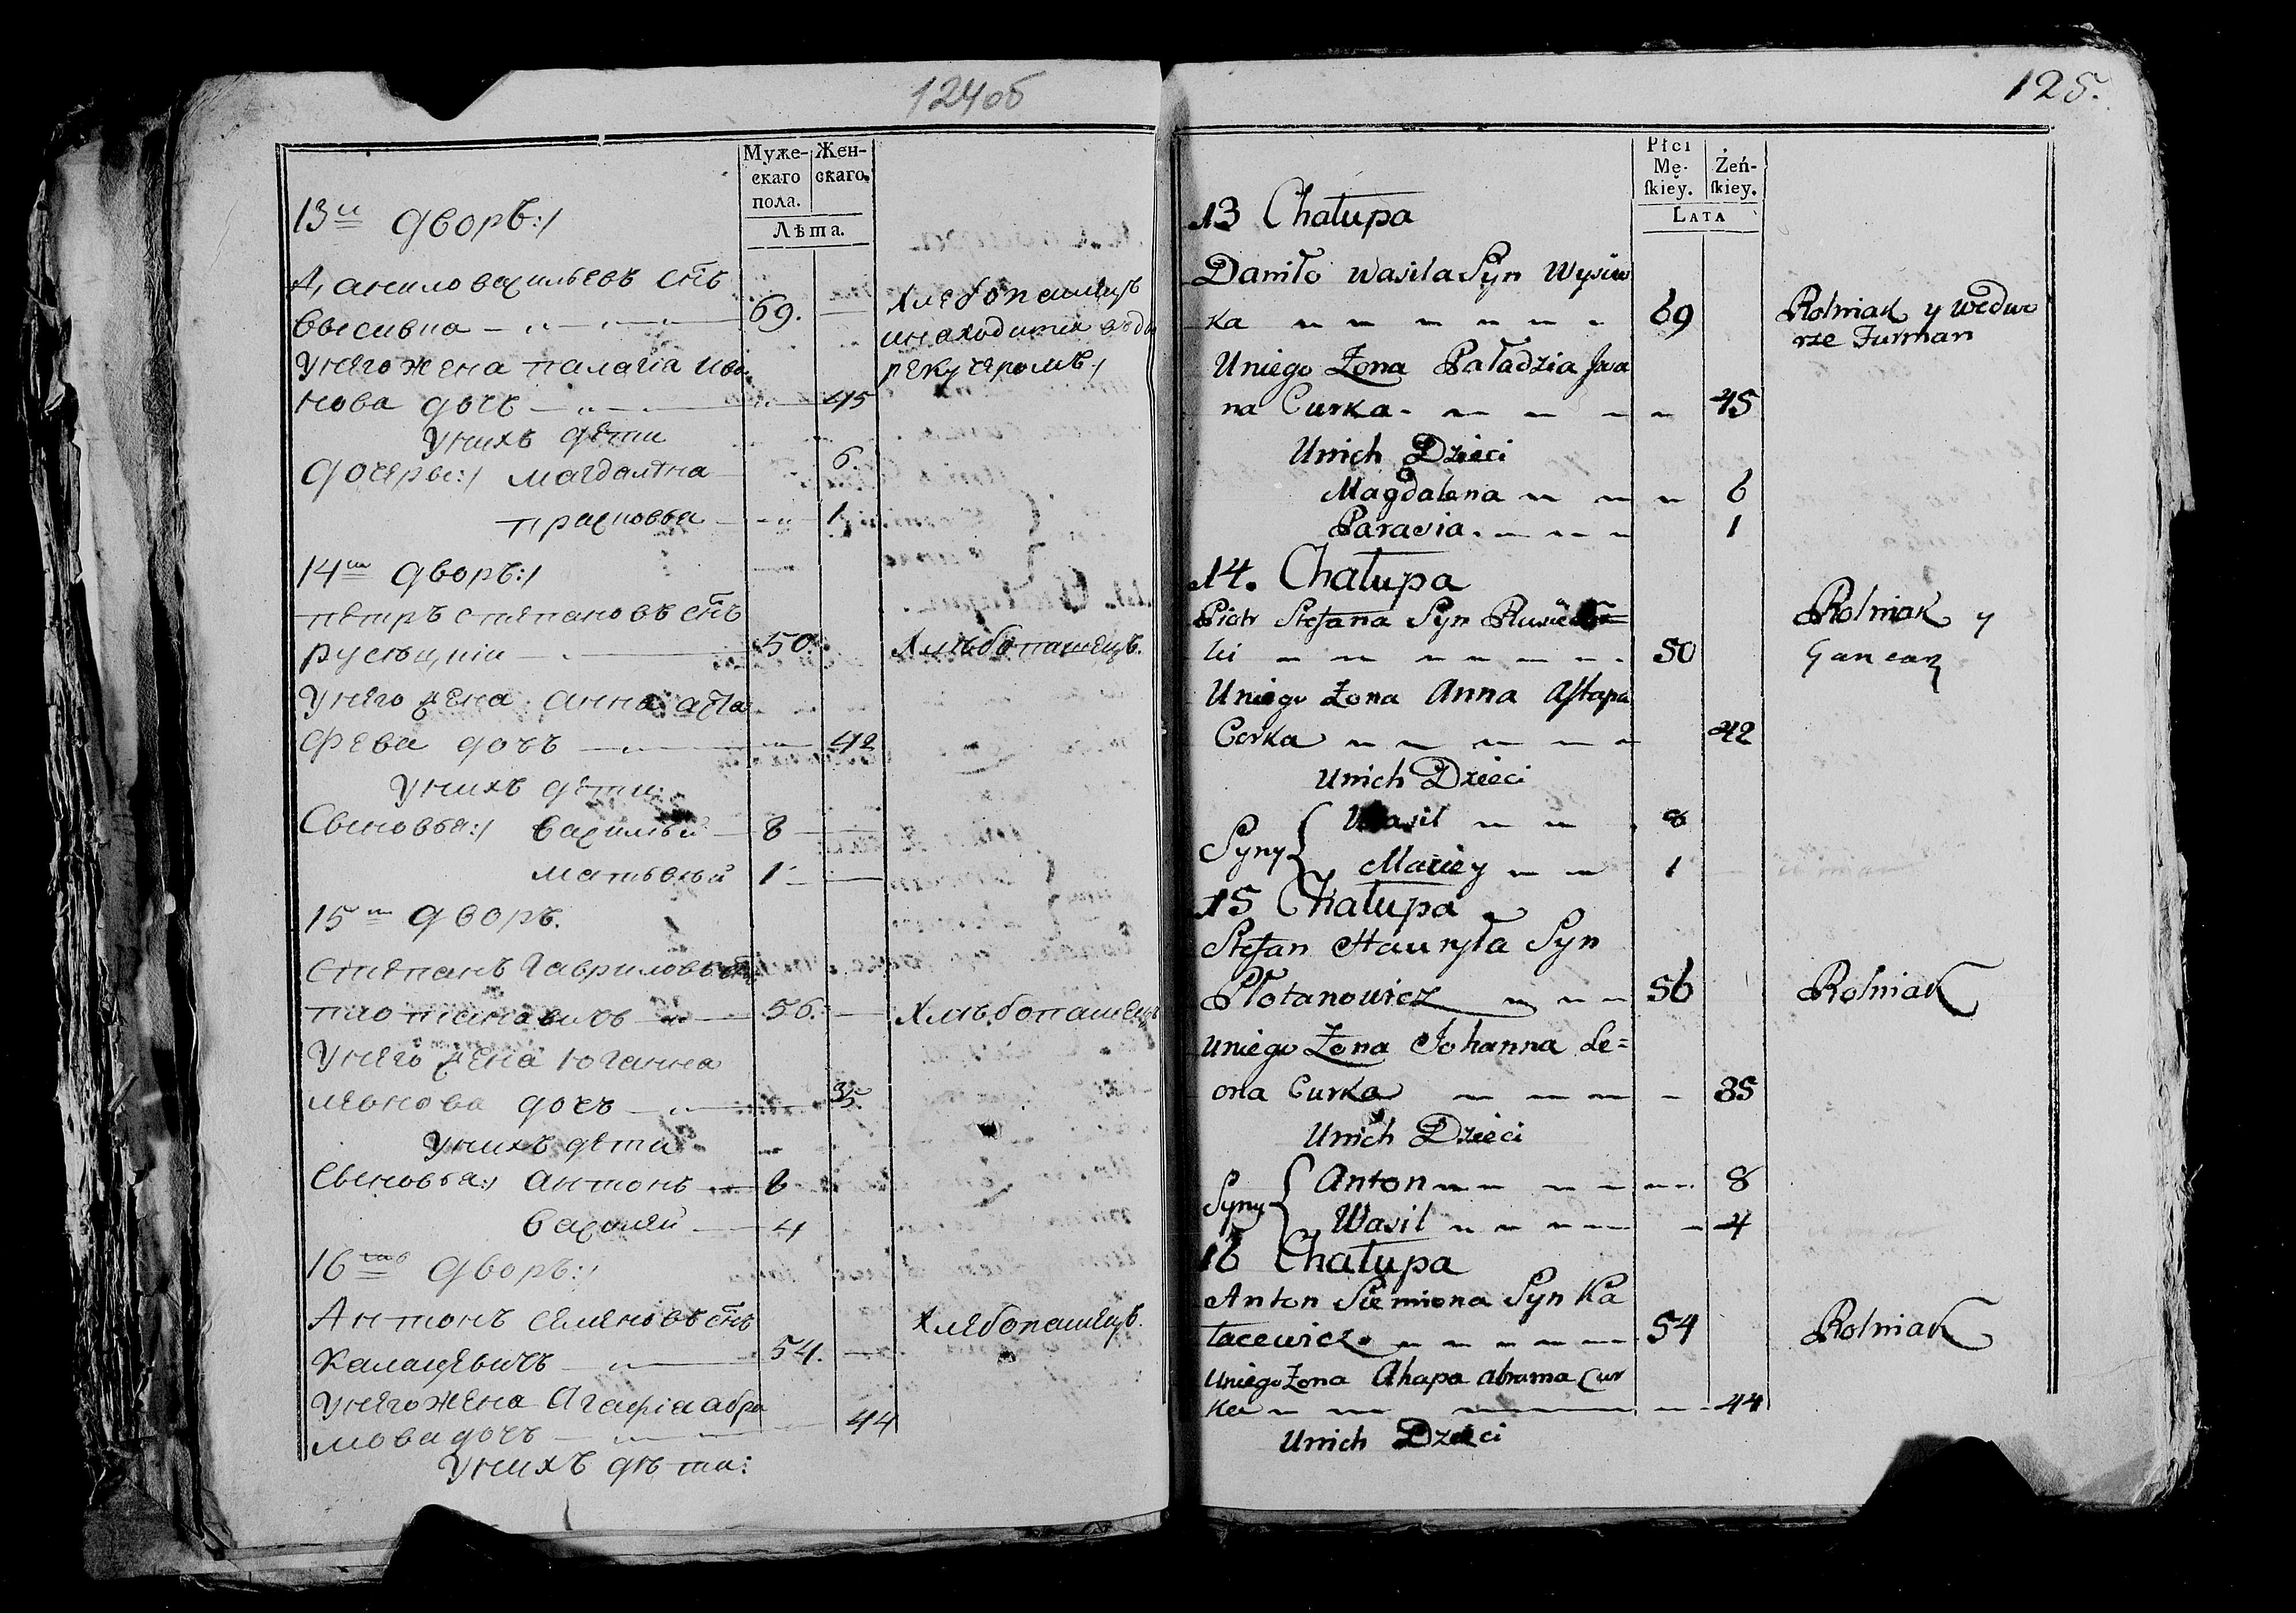 124об
Муже-
скаго
пола.
Жен-
скаго.
Лѣта.
13й дворъ:/
Данило васильевъ снъ
Высивка 69. Хлебопашецъ
и находится въ дво
У него жена палагіа ива
реку черомъ:/
нова дочь 45
У нихъ дети
дочери:/ магдалѣна 6.
прасковья 1.
14й дворъ:/
петръ степановъ снъ
русецкіи 50. Хлѣбопашецъ.
У него жена анна аста
фева дочь 42
У нихъ дети:
Сыновья:/ василѣй 8
матьвѣй 1
15й дворъ.
степанъ гавриловъ снъ
плотановичъ 56. Хлѣбопашецъ
У него жена юганна
леонова дочь 35.
У нихъ дети
Сыновья:/ антонъ 8
василей 4
16й дворъ:/
Антонъ семеновъ снъ Хлебопашецъ.
Калацевичъ 54.
У него жена Агафіа абра
мова дочь 44
У нихъ дѣти:
125.
Płci
Mę-
ſkiey.
Żeń-
ſkiey.
Lata
13 Chałupa
Daniło Wasila Syn Wysiw
ka 69 Rolniak y wedwo
rze Furman
Uniego Żona Paładzia Iwa
na Curka 45
Unich Dzieci
Magdalena 6
Parasia 1
14. Chałupa
Piotr Stefana Syn Rusie
cki 50 Rolniak y
Gancarz
Uniego Żona Anna Astapa
Corka 42
Unich Dzieci
Syny Wasil 8
Maciey 1
15 Chałupa
Stefan Hauryła Syn
Płotanowicz 56 Rolniak
Uniego Żona Johanna Le=
ona Curka 35
Unich Dzieci
Syny Anton 8
Wasil 4
16 Chałupa
Anton Siemiona Syn Ka
łacewicz 54 Rolniak
Uniego Żona Ahapa Abrama Cur
ka 44
Unich Dzieci